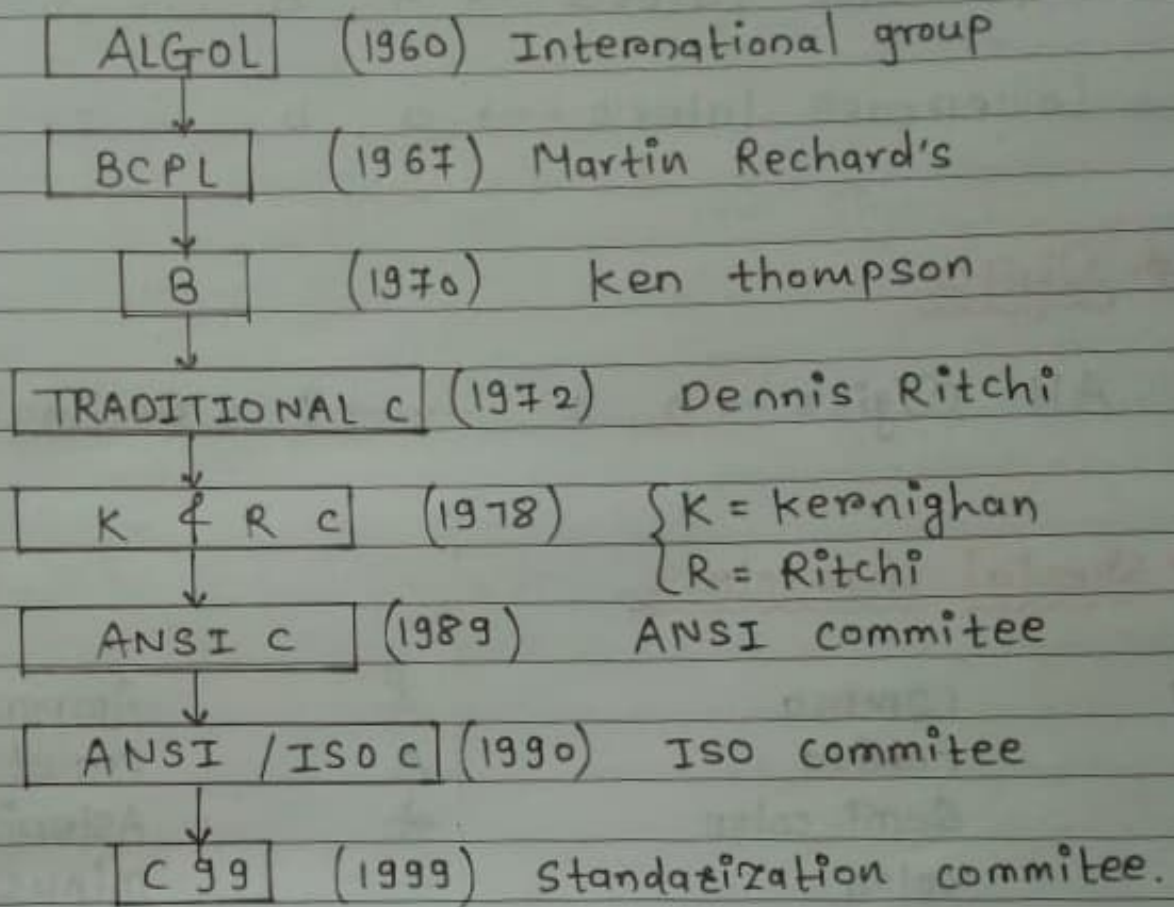 ALGOL (1960) International group
BCPL (1967) Martin Rechard's
B (1970) ken thompson
TRADITIONAL C (1972) Dennis Ritchi
K & R C (1978) { K = kernighan
R = Ritchi
ANSI C (1989) ANSI commitee
ANSI / ISO C (1990) ISO commitee
C 99 (1999) Standazization commitee.